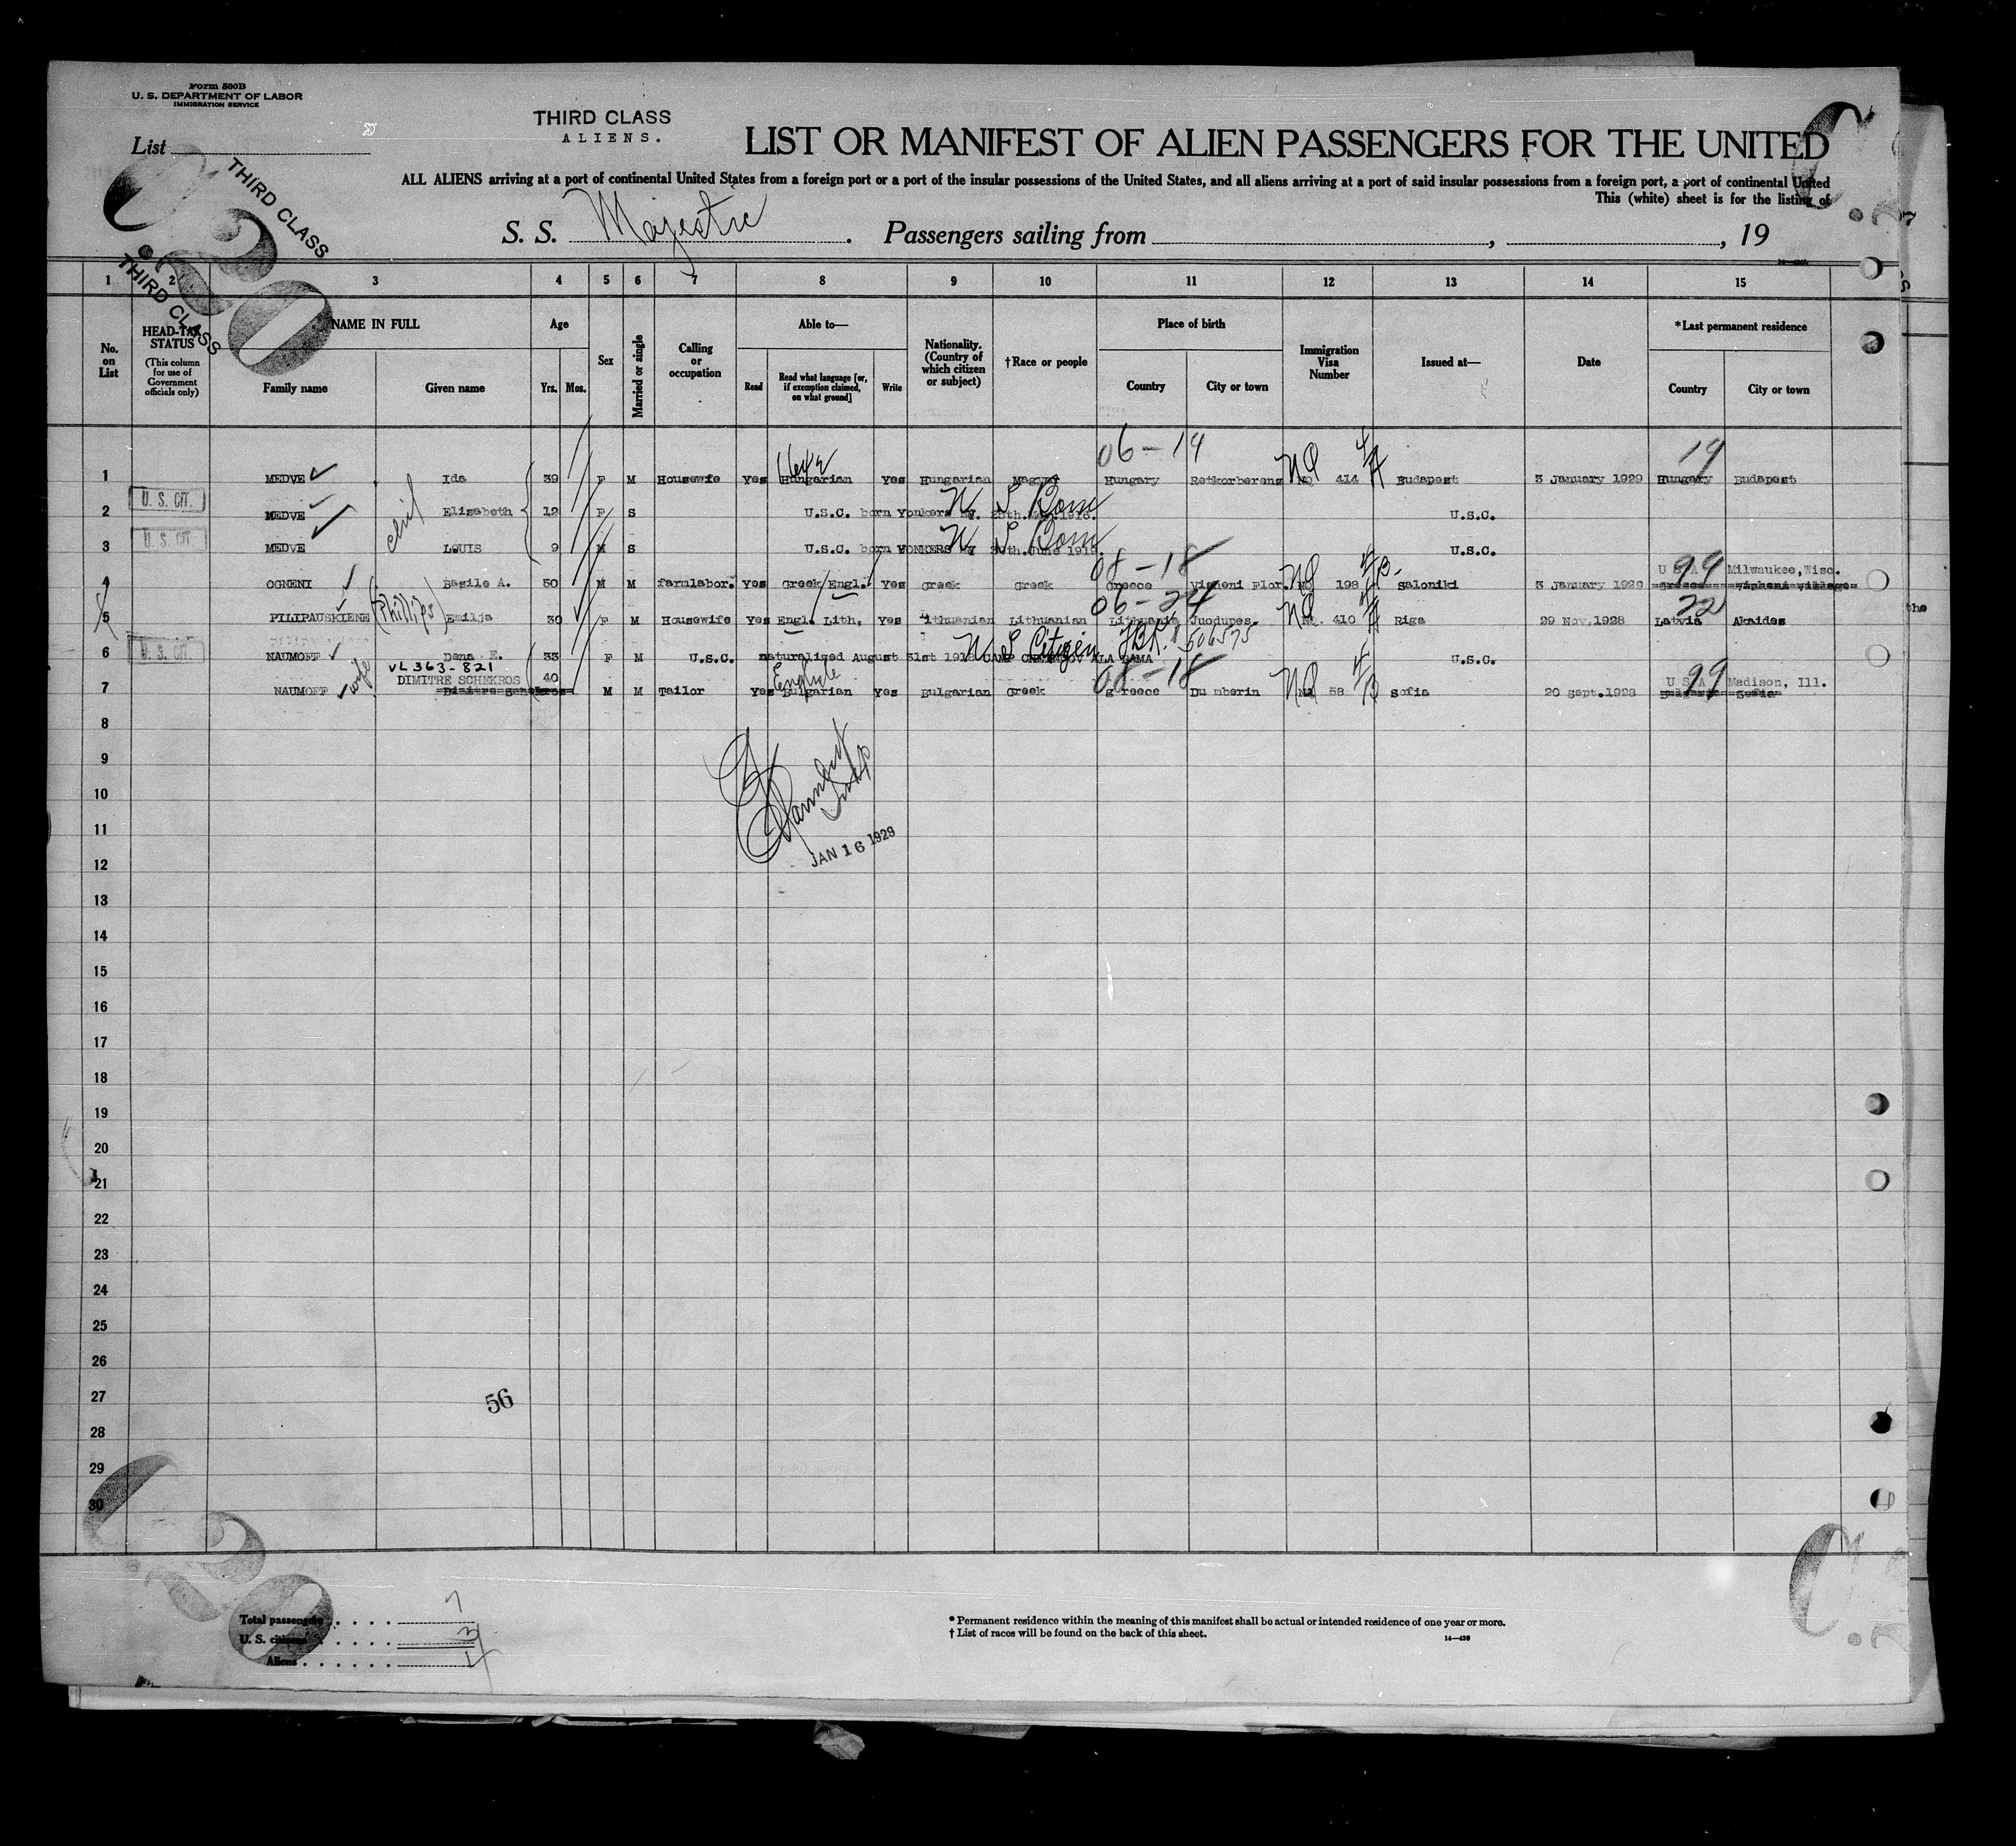 Form 500B
U. S. DEPARTMENT OF LABOR
IMMIGRATION SERVICE
THIRD CLASS
ALIENS.
List
LIST OR MANIFEST OF ALIEN PASSENGERS FOR THE UNITED
THIRD CLASS
THIRD CLASS
ALL ALIENS arriving at a port of continental United States from a foreign port or a port of the insular possessions of the United States, and all aliens arriving at a port of said insular possessions from a foreign port, a port of continental United
This (white) sheet is for the listing of
S. S. Majestic. Passengers sailing from , , 19
1 2 3 4 5 6 7 8 9 10 11 12 13 14 15
No. on List
HEAD-TAX STATUS
(This column for use of Government officials only)
NAME IN FULL
Family name Given name
Age
Yrs. Mos.
Sex
Married or single
Calling or occupation
Able to—
Read Read what language [or, if exemption claimed, on what ground] Write
Nationality. (Country of which citizen or subject)
†Race or people
Place of birth
Country City or town
Immigration Visa Number
Issued at—
Date
*Last permanent residence
Country City or town
06-19 19
1 MEDVE Ida 39 F M Housewife Yes Hungarian Yes Hungarian Magyar Hungary Retkorberens NQ No 414 Budapest 3 January 1929 Hungary Budapest
2 U. S. CIT. MEDVE Elizabeth 12 F S U.S.C. born Yonkers NY. U.S.C.
3 U. S. CIT. MEDVE LOUIS 9 M S U.S.C. born YONKERS NY U.S.C.
08-18 99
U S A Milwaukee, Wisc.
4 OGNENI Basile A. 50 M M farmlabor. Yes Greek/Engl. Yes Greek Greek Greece Visheni Flor. NQ 198 Saloniki 3 January 1929 Greece visheni village
06-24 22
5 PILIPAUSKIENE (Phillips) Emilja 30 F M Housewife Yes Engl. Lith. Yes Lithuanian Lithuanian Lithuania Juodupes NQ 410 Riga 29 Nov.1928 Latvia Akaides
6 U. S. CIT. NAUMOFF Dena E. 33 F M U.S.C. naturalized August 31st 1918 U S Citizen U.S.C.
wife
VL 363-821
DIMITRE SCHEKROS 40 English 08-18 99
U S A Madison, Ill.
7 NAUMOFF M M Tailor Yes Bulgarian Yes Bulgarian Greek Greece Dumberin NQ 58 Sofia 20 sept.1928 Bulgaria Sofia
8
9
10
11
JAN 16 1929
12
13
14
15
16
17
18
19
20
21
22
23
24
25
26
27
56
28
29
30
Total passengers 7
U. S. citizens 3
Aliens 4
* Permanent residence within the meaning of this manifest shall be actual or intended residence of one year or more.
† List of races will be found on the back of this sheet.
14—439
the